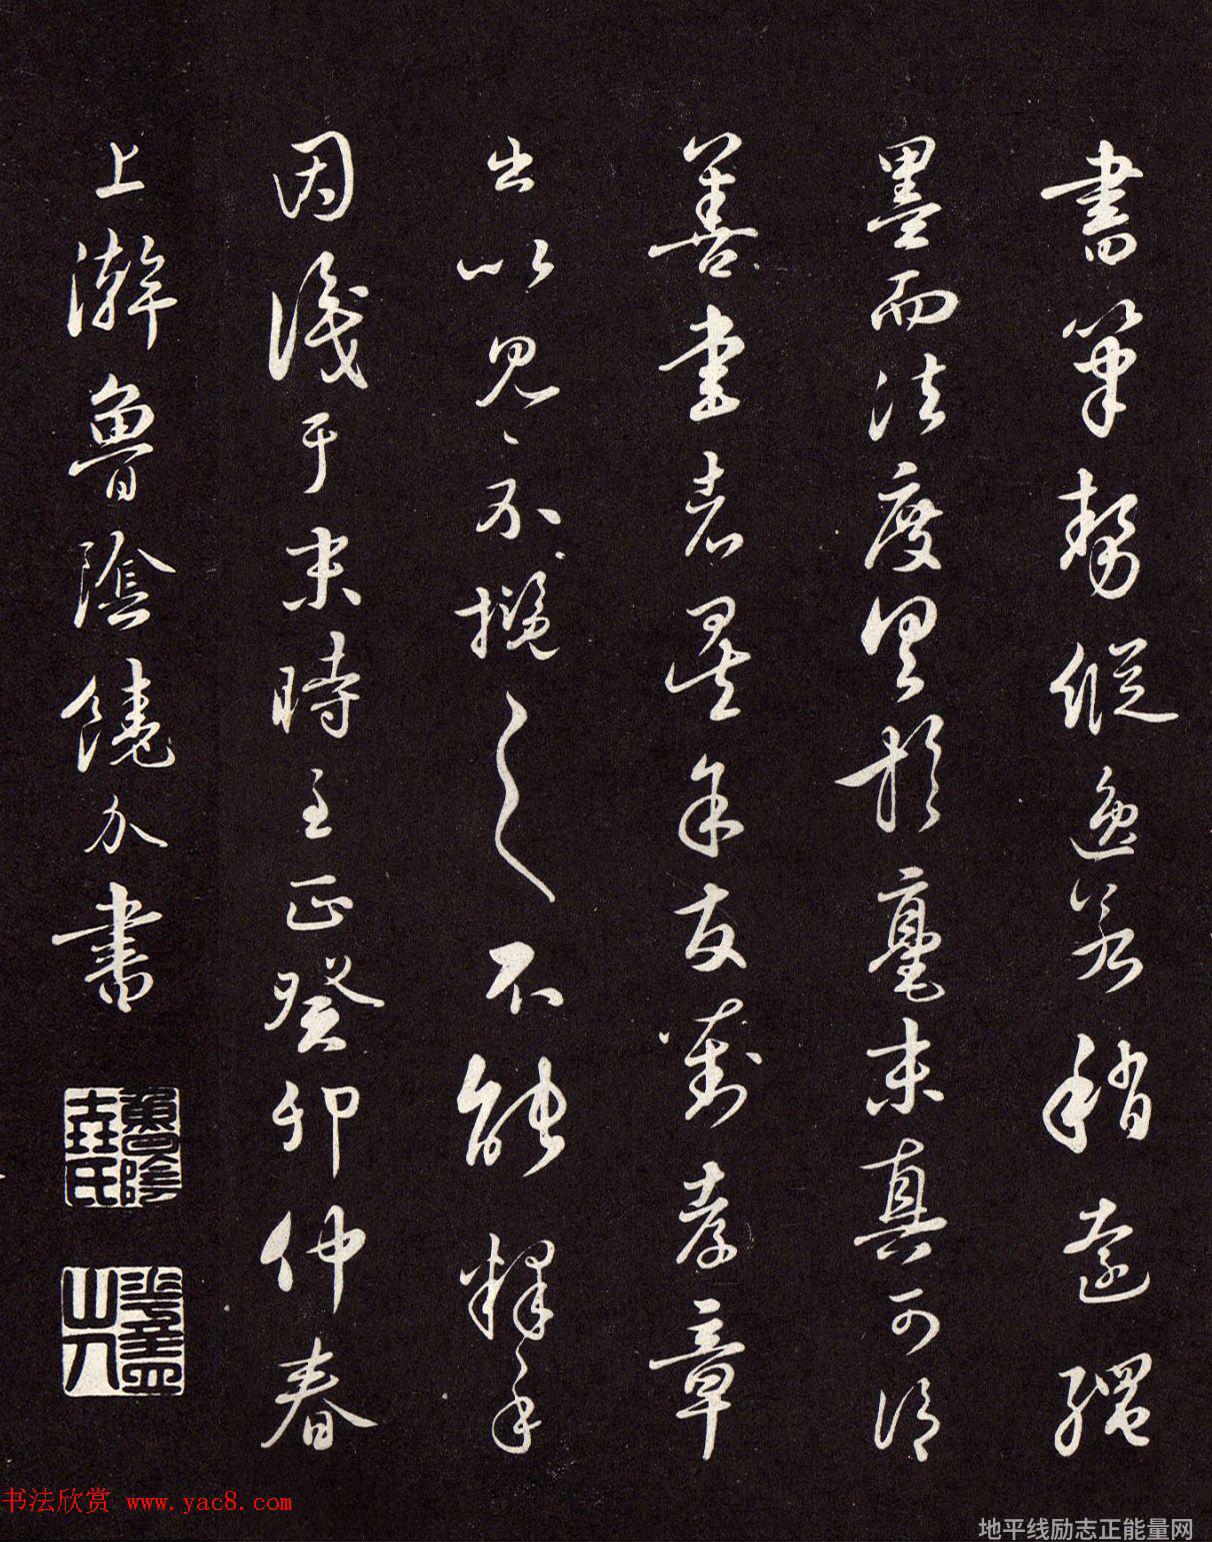 書筆勢縱逸若稍遠繩
墨而法度具於毫末真可謂
善書者矣余友劉孝章
出以見示攬之不能釋手
因識于末時至正癸卯仲春
上澣魯陰饒介書
书法欣赏 www.yac8.com
地平线励志正能量网